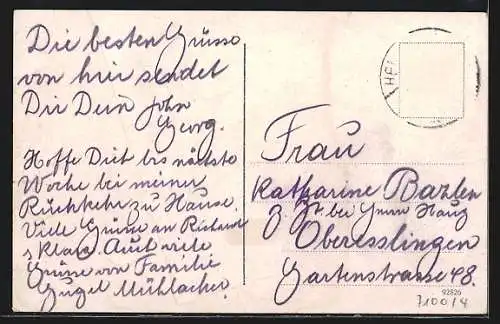 Die besten Grüsse
von hier sendet
Dir Dein John
Georg.
Hoffe Dich bis nächste
Woche bei meiner
Rückkehr zu Hause.
Viele Grüsse an Richard
u Klara. Auch viele
Grüsse von Familie
Gugel Mühlacher.
Frau
Katharine Bazlen
z. Zt bei Herrn Haug
Oberesslingen
Gartenstrasse 48.
92826
7100/4